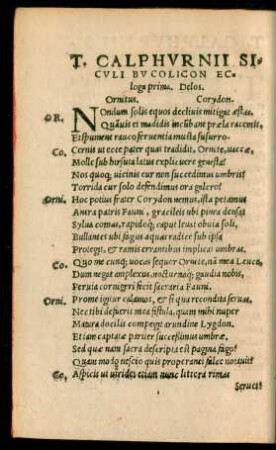 T. CALPHVRNII SI
CVLI BVCOLICON EC
loga prima. Delos.
Ornitus. Corydon.
OR. NOndum solis equos decliuis mitigat æstas,
Quāuis et madidis incūbant præla racemis,
Et spument rauco feruentia musta susurro.
Co. Cernis ut ecce pater quas tradidit, Ornite, uaccæ,
Molle sub hirsuta latus explicuere genesta?
Nos quoq; uicinis cur non succedimus umbris?
Torrida cur solo defendimus ora galero?
Orni. Hoc potius frater Corydon nemus, ista petamus
Antra patris Fauni, graciles ubi pinea densat
Sylua comas, rapidoq; caput leuat obuia soli,
Bullantes ubi fagus aquas radice sub ipsa
Protegit, et ramis errantibus implicat umbras.
Co. Quo me cunq; uocas sequor Ornite, nā mea Leuce,
Dum negat amplexus, nocturnaq; gaudia nobis,
Peruia cornigeri fecit sacraria Fauni.
Orni. Prome igitur calamos, et si qua recondita seruas,
Nec tibi defuerit mea fistula, quam mihi nuper
Matura docilis compegit arundine Lygdon.
Et iam captatæ pariter successimus umbræ,
Sed quæ nam sacra descripta est pagina fago?
Quam modo nescio quis properanti falce notauit?
Co. Aspicis ut uirides etiam nunc littera rimas
Seruet?